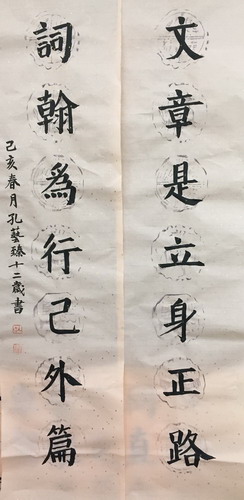 文章是立身正路
詞翰為行己外篇
己亥春月孔藝臻十二歲書